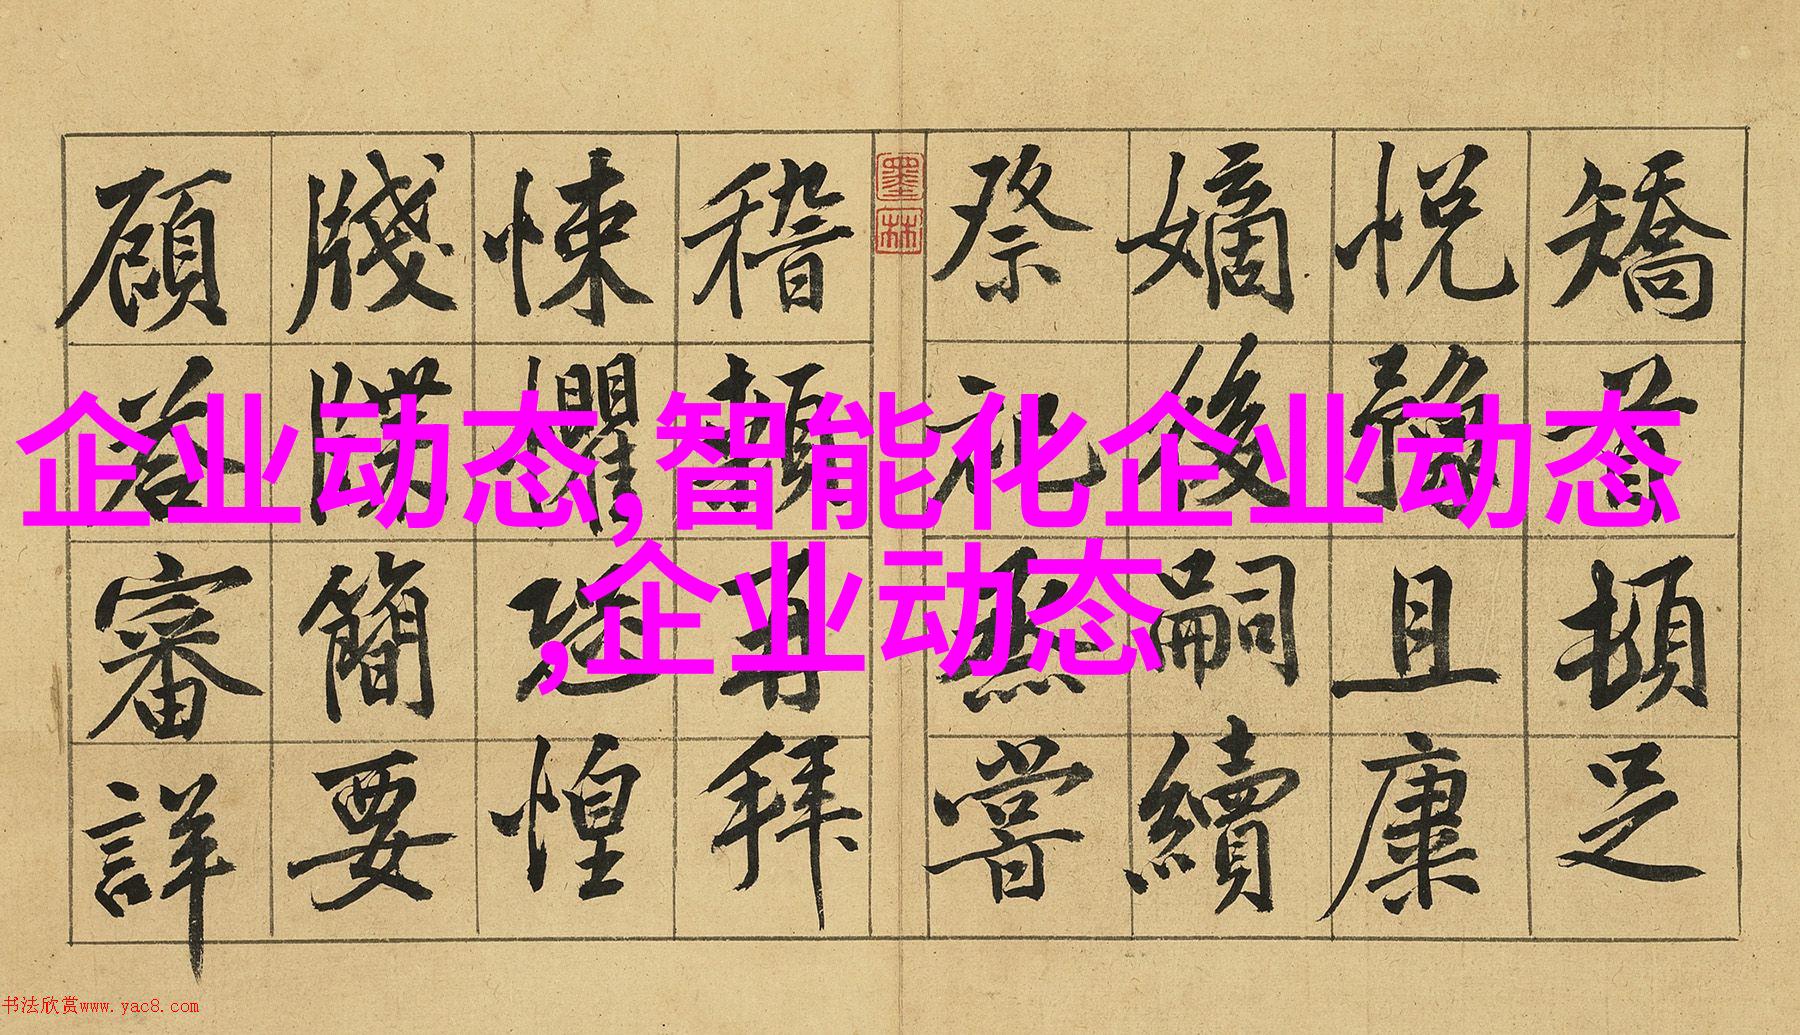 企业动态,智能化企业动态
,企业动态
矯首頓足
悅豫且康
嫡後嗣續
祭祀蒸嘗
墨林
稽顙再拜
悚懼恐惶
牋牒簡要
顧答審詳
书法欣赏www.yac8.com